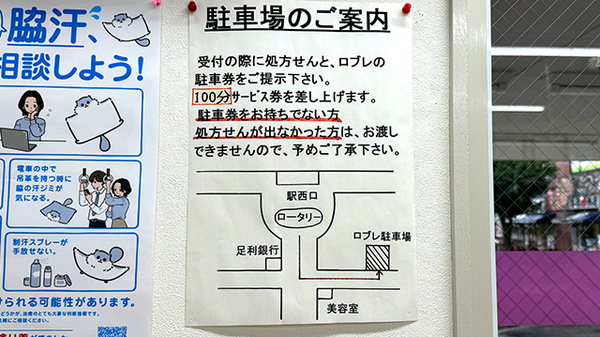 脇汗、
相談しよう!
電車の中で
吊革を持つ時に
脇の汗ジミが
気になる。
制汗スプレーが
手放せない。
られる可能性があります。
駐車場のご案内
受付の際に処方せんと、ロブレの
駐車券をご提示下さい。
100分サービス券を差し上げます。
駐車券をお持ちでない方
処方せんが出なかった方は、お渡し
できませんので、予めご了承下さい。
駅西口
ロータリー
足利銀行
ロブレ駐車場
美容室